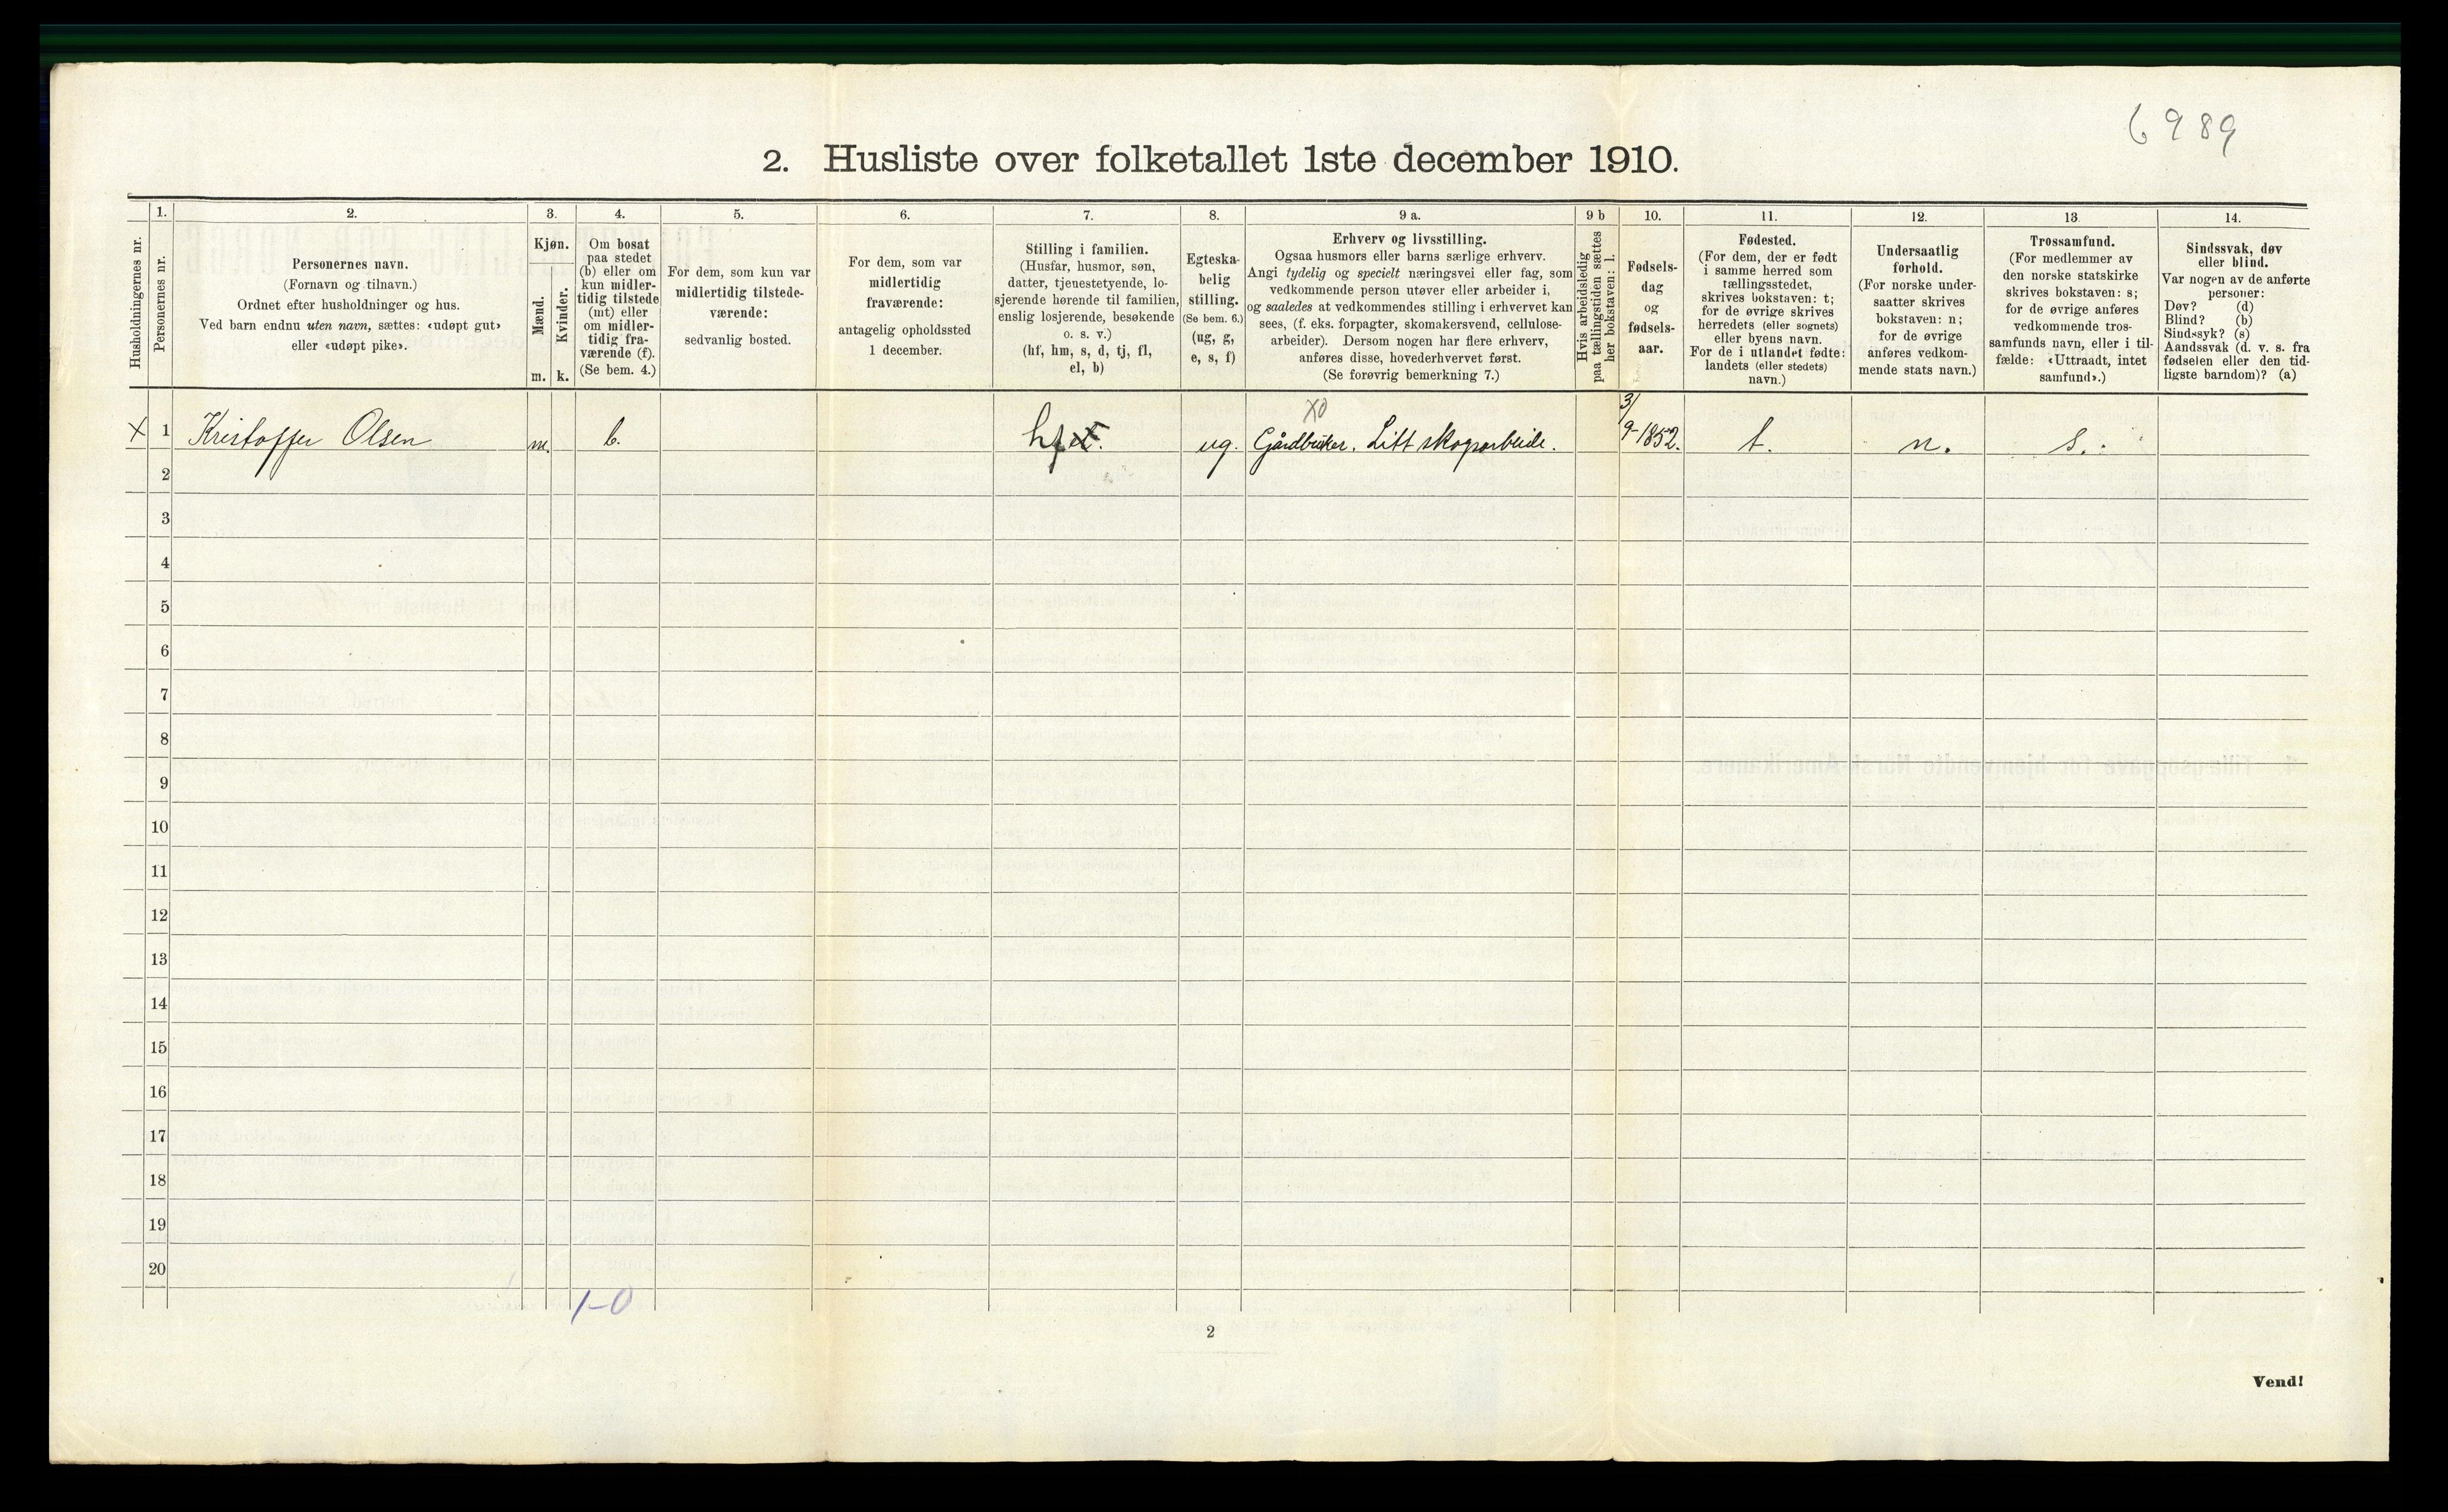 6989
2. Husliste over folketallet 1ste december 1910.
Husholdningernes nr.
1.
Personernes nr.
2.
Personernes navn.
(Fornavn og tilnavn.)
Ordnet efter husholdninger og hus.
Ved barn endnu uten navn, sættes: «udøpt gut»
eller «udøpt pike».
3.
Kjøn.
Mænd.
Kvinder.
m.
k.
4.
Om bosat
paa stedet
(b) eller om
kun midler-
tidig tilstede
(mt) eller
om midler-
tidig fra-
værende (f).
(Se bem. 4.)
5.
For dem, som kun var
midlertidig tilstede-
værende:
sedvanlig bosted.
6.
For dem, som var
midlertidig
fraværende:
antagelig opholdssted
1 december.
7.
Stilling i familien.
(Husfar, husmor, søn,
datter, tjenestetyende, lo-
sjerende hørende til familien,
enslig losjerende, besøkende
o. s. v.)
(hf, hm, s, d, tj, fl,
el, b)
8.
Egteska-
belig
stilling.
(Se bem. 6.)
(ug, g,
e, s, f)
9 a.
Erhverv og livsstilling.
Ogsaa husmors eller barns særlige erhverv.
Angi tydelig og specielt næringsvei eller fag, som
vedkommende person utøver eller arbeider i,
og saaledes at vedkommendes stilling i erhvervet kan
sees, (f. eks. forpagter, skomakersvend, cellulose-
arbeider). Dersom nogen har flere erhverv,
anføres disse, hovederhvervet først.
(Se forøvrig bemerkning 7.)
9 b
Hvis arbeidsledig
paa tællingstiden sættes
her bokstaven: l.
10.
Fødsels-
dag
og
fødsels-
aar.
11.
Fødested.
(For dem, der er født
i samme herred som
tællingsstedet,
skrives bokstaven: t;
for de øvrige skrives
herredets (eller sognets)
eller byens navn.
For de i utlandet fødte:
landets (eller stedets)
navn.)
12.
Undersaatlig
forhold.
(For norske under-
saatter skrives
bokstaven: n;
for de øvrige
anføres vedkom-
mende stats navn.)
13.
Trossamfund.
(For medlemmer av
den norske statskirke
skrives bokstaven: s;
for de øvrige anføres
vedkommende tros-
samfunds navn, eller i til-
fælde: «Uttraadt, intet
samfund».)
14.
Sindssvak, døv
eller blind.
Var nogen av de anførte
personer:
Døv? (d)
Blind? (b)
Sindssyk? (s)
Aandssvak (d. v. s. fra
fødselen eller den tid-
ligste barndom)? (a)
X 1 Kristoffer Olsen m. b. ug. X0 Gårdbruker. Litt skogarbeide. 3/9-1852. t. n. s.
2
3
4
5
6
7
8
9
10
11
12
13
14
15
16
17
18
19
20
1-0
2
Vend!